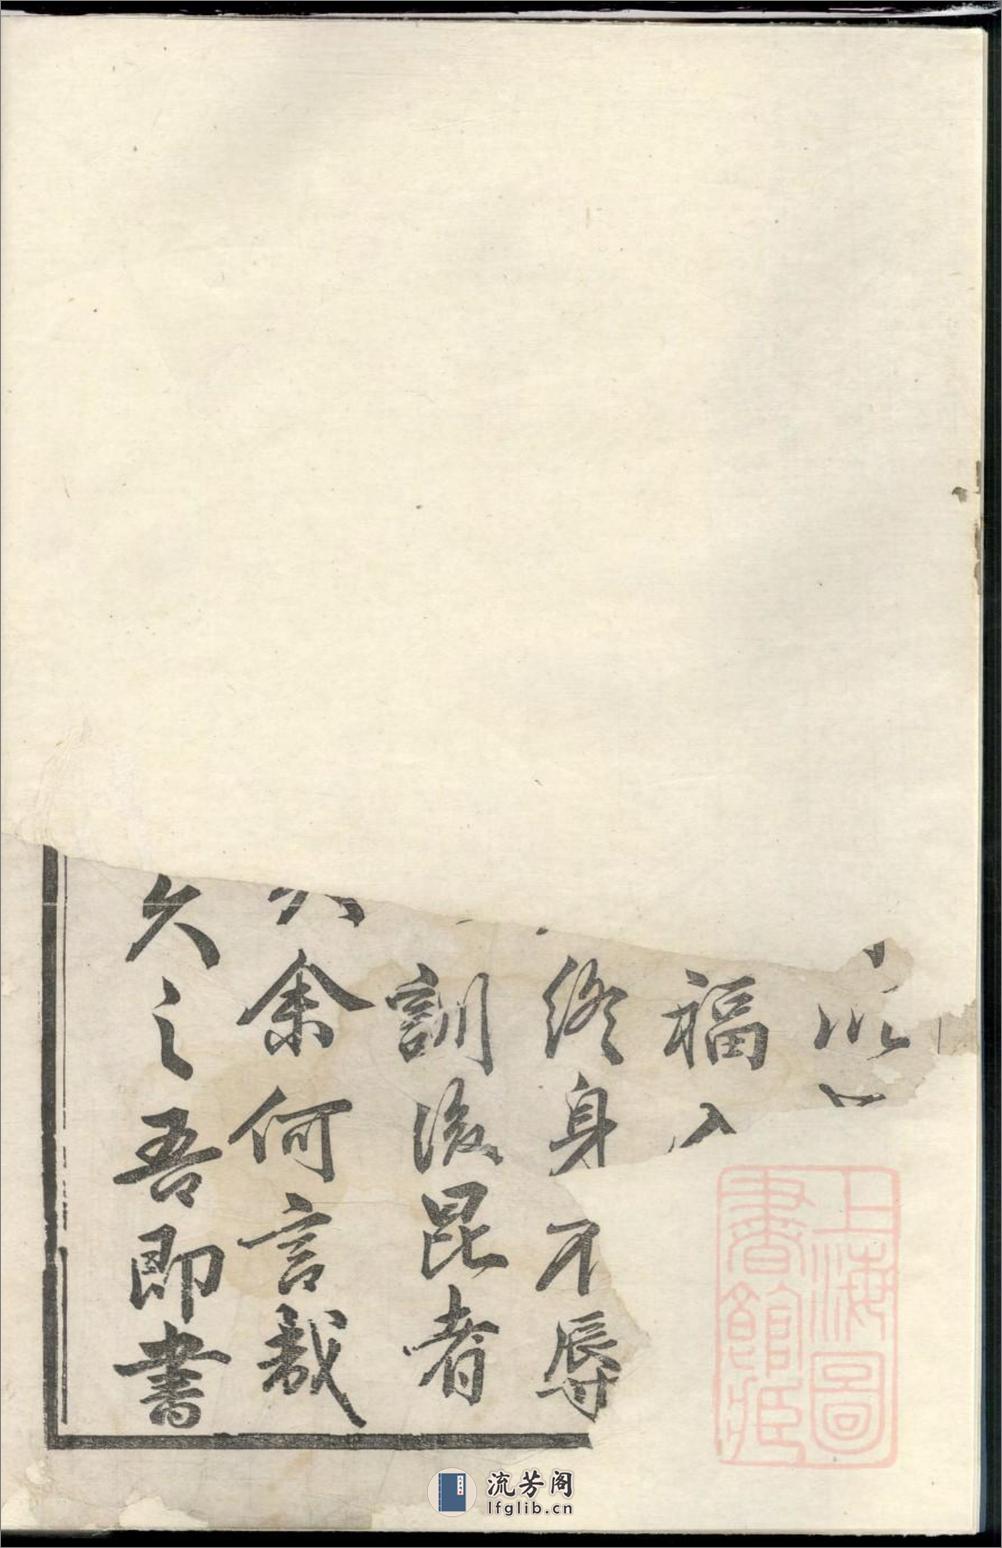 福
終身不辱
訓後昆者
余何言哉
久之吾即書
上海圖
書館藏
流芳阁
lfglib.cn